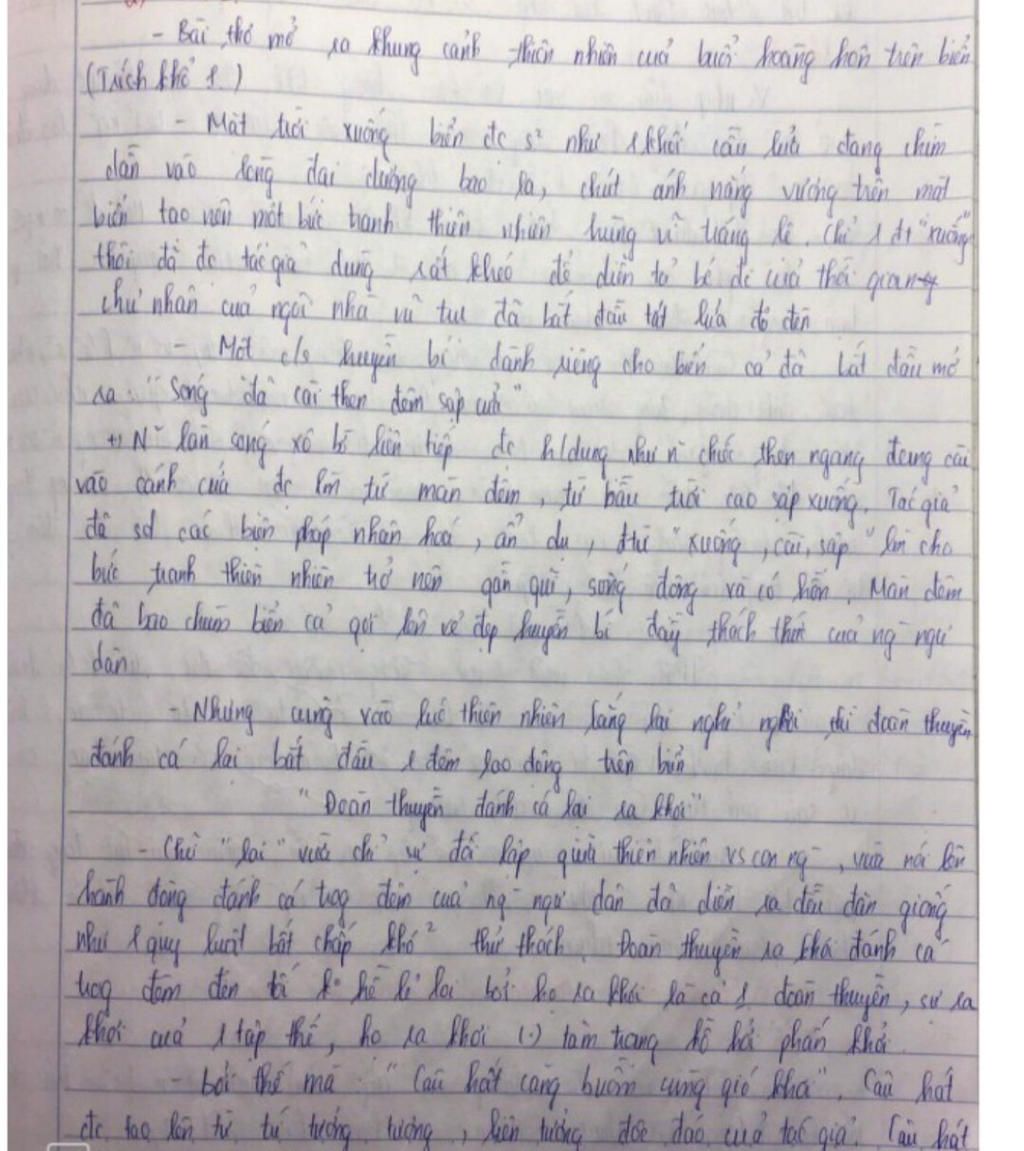 - Bài thơ mở ra khung cảnh thiên nhiên của buổi hoàng hôn trên biển
(Trích khổ 1.)
- Mặt trời xuống biển đc s² như 1 khối cầu lửa đang chìm
dần vào lòng đại dương bao la, chút ánh nắng vương trên mặt
biển tạo nên một bức tranh thiên nhiên hùng vĩ tráng lệ. Chỉ 1 đt "xuống"
thôi đã đc tác giả dùng rất khéo để diễn tả bc đi của thời gian
chủ nhân của ngôi nhà vũ trụ đã bắt đầu tắt lửa đỏ đèn
- Một c/s huyền bí dành riêng cho biển cả đã bắt đầu mở
ra "Sóng đã cài then đêm sập cửa"
+, N~ làn sóng xô bờ liên tiếp đc h/dung như n~ chiếc then ngang đang cài
vào cánh cửa đc làm từ màn đêm, từ bầu trời cao sập xuống. Tác giả
đã sd các biện pháp nhân hoá, ẩn dụ, đtừ "xuống, cài, sập" làm cho
bức tranh thiên nhiên trở nên gần gũi, sống động và có hồn. Màn đêm
đã bao chùm biển cả gợi lên vẻ đẹp huyền bí đầy thách thức của ng~ ngư
dân.
- Nhưng cũng vào lúc thiên nhiên lắng lại nghỉ ngơi thì đoàn thuyền
đánh cá lại bắt đầu 1 đêm lao động trên biển
"Đoàn thuyền đánh cá lại ra khơi"
- Chữ "lại" vừa chỉ sự đối lập giữa thiên nhiên vs con ng~, vừa nói lên
hành động đánh cá trog đêm của ng~ ngư dân đã diễn ra đều đặn giống
như 1 quy luật bất chấp khó² thử thách. Đoàn thuyền ra khơi đánh cá
trog đêm đen tối k° hề lẻ loi bởi họ ra khơi là cả 1 đoàn thuyền, sự ra
khơi của 1 tập thể, họ ra khơi (.) tâm trạng hồ hởi phấn khởi.
- bởi thế mà "Câu hát căng buồm cùng gió khơi". Câu hát
đc tạo lên từ trí tưởng tượng, liên tưởng độc đáo của tác giả. Câu hát